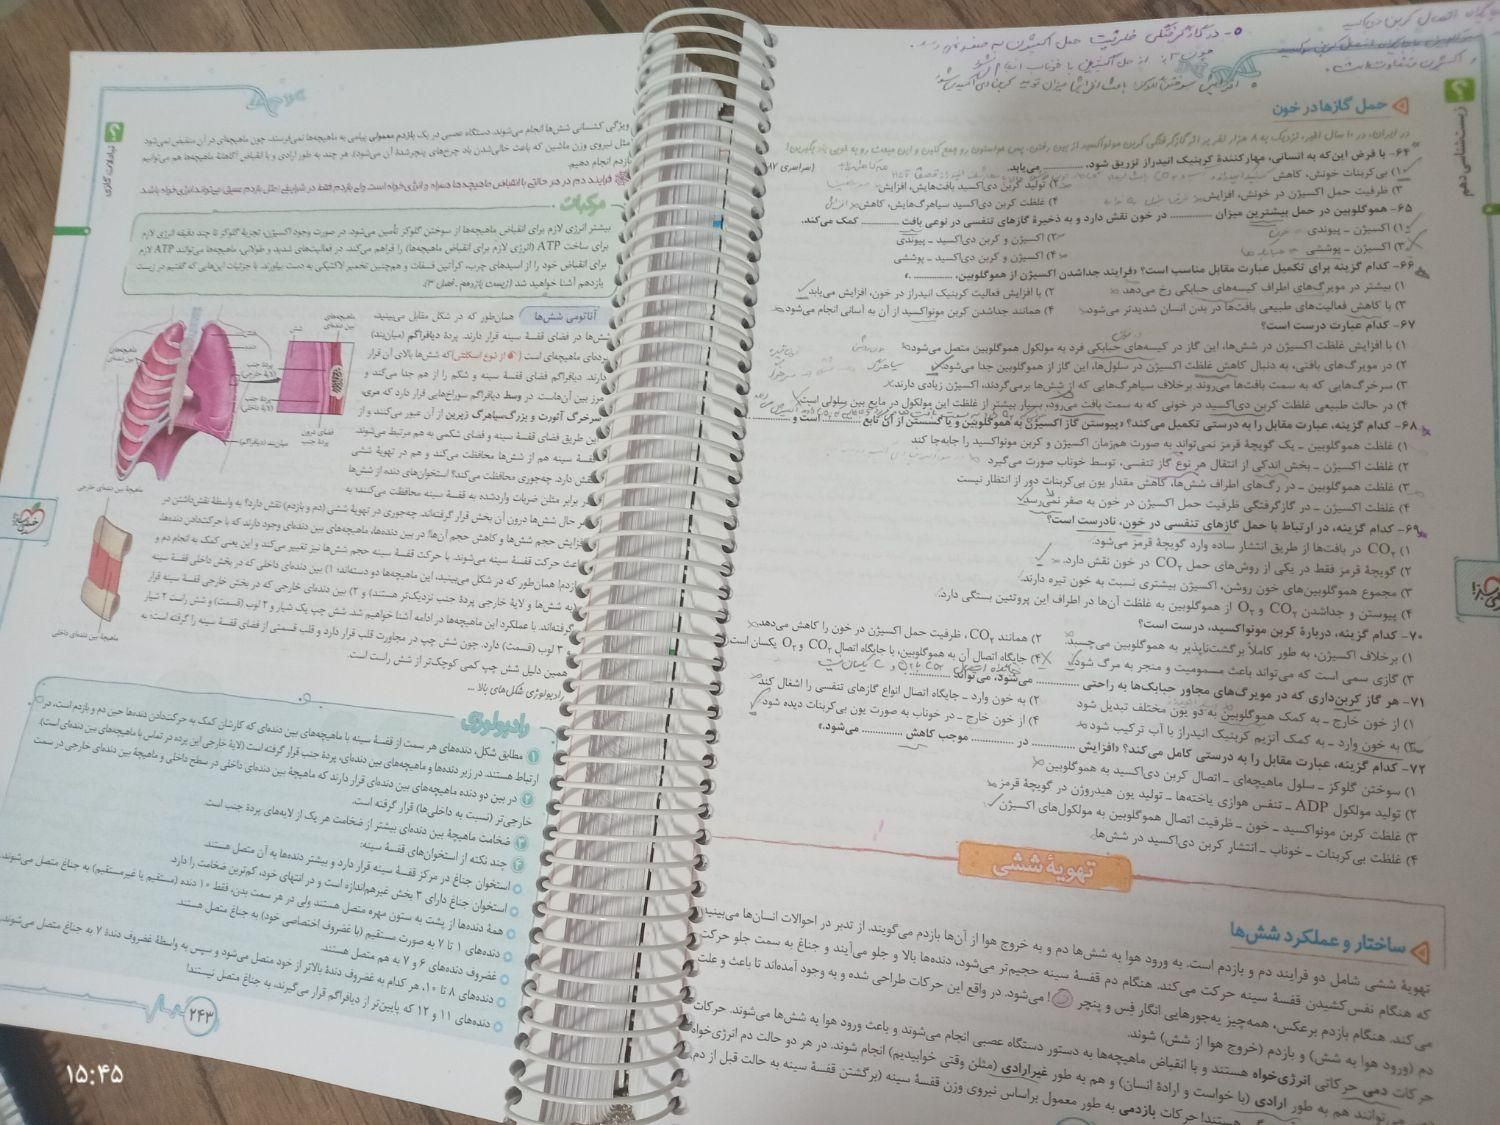 زیست‌شناسی دهم
حمل گازها در خون
در ایران، در ۱۰ سال اخیر، نزدیک به ۸ هزار نفر بر اثر گازگرفتگی کربن مونواکسید از بین رفتن، پس حواستون رو جمع کنین و این مبحث رو به خوبی یاد بگیرین!
۶۴- با فرض این‌که به انسانی، مهارکنندهٔ کربنیک انیدراز تزریق شود، ............ می‌یابد. (سراسری ۸۷
۱) بی‌کربنات خونش، کاهش
۲) تولید کربن دی‌اکسید بافت‌هایش، افزایش
۳) ظرفیت حمل اکسیژن در خونش، افزایش
۴) غلظت کربن دی‌اکسید سیاهرگ‌هایش، کاهش
۶۵- هموگلوبین در حمل بیشترین میزان ............ در خون نقش دارد و به ذخیرهٔ گازهای تنفسی در نوعی بافت ............ کمک می‌کند.
۱) اکسیژن ـ پیوندی
۲) اکسیژن و کربن دی‌اکسید ـ پیوندی
۳) اکسیژن ـ پوششی
۴) اکسیژن و کربن دی‌اکسید ـ پوششی
۶۶- کدام گزینه برای تکمیل عبارت مقابل مناسب است؟ «فرایند جداشدن اکسیژن از هموگلوبین، ............ .»
۱) بیشتر در مویرگ‌های اطراف کیسه‌های حبابکی رخ می‌دهد
۲) با افزایش فعالیت کربنیک انیدراز در خون، افزایش می‌یابد
۳) با کاهش فعالیت‌های طبیعی بافت‌ها در بدن انسان شدیدتر می‌شود
۴) همانند جداشدن کربن مونواکسید از آن به آسانی انجام می‌شود
۶۷- کدام عبارت درست است؟
۱) با افزایش غلظت اکسیژن در شش‌ها، این گاز در کیسه‌های حبابکی فرد به مولکول هموگلوبین متصل می‌شود.
۲) در مویرگ‌های بافتی، به دنبال کاهش غلظت اکسیژن در سلول‌ها، این گاز از هموگلوبین جدا می‌شود.
۳) سرخرگ‌هایی که به سمت بافت‌ها می‌روند برخلاف سیاهرگ‌هایی که از شش‌ها برمی‌گردند، اکسیژن زیادی دارند.
۴) در حالت طبیعی غلظت کربن دی‌اکسید در خونی که به سمت بافت می‌رود، بسیار بیشتر از غلظت این مولکول در مایع بین سلولی است.
۶۸- کدام گزینه، عبارت مقابل را به درستی تکمیل می‌کند؟ «پیوستن گاز اکسیژن به هموگلوبین و یا گسستن از آن تابع ............ است و ............
۱) غلظت هموگلوبین ـ یک گویچهٔ قرمز نمی‌تواند به صورت هم‌زمان اکسیژن و کربن مونواکسید را جابه‌جا کند
۲) غلظت اکسیژن ـ بخش اندکی از انتقال هر نوع گاز تنفسی، توسط خوناب صورت می‌گیرد
۳) غلظت هموگلوبین ـ در رگ‌های اطراف شش‌ها، کاهش مقدار یون بی‌کربنات دور از انتظار نیست
۴) غلظت اکسیژن ـ در گازگرفتگی ظرفیت حمل اکسیژن در خون به صفر نمی‌رسد
۶۹- کدام گزینه، در ارتباط با حمل گازهای تنفسی در خون، نادرست است؟
۱) CO₂ در بافت‌ها از طریق انتشار ساده وارد گویچهٔ قرمز می‌شود.
۲) گویچهٔ قرمز فقط در یکی از روش‌های حمل CO₂ در خون نقش دارد.
۳) مجموع هموگلوبین‌های خون روشن، اکسیژن بیشتری نسبت به خون تیره دارند.
۴) پیوستن و جداشدن CO₂ و O₂ از هموگلوبین به غلظت آن‌ها در اطراف این پروتئین بستگی دارد.
۷۰- کدام گزینه، دربارهٔ کربن مونواکسید، درست است؟
۱) برخلاف اکسیژن، به طور کاملاً برگشت‌ناپذیر به هموگلوبین می‌چسبد.
۲) همانند CO₂، ظرفیت حمل اکسیژن در خون را کاهش می‌دهد.
۳) گازی سمی است که می‌تواند باعث مسمومیت و منجر به مرگ شود.
۴) جایگاه اتصال آن به هموگلوبین، با جایگاه اتصال CO₂ و O₂ یکسان است.
۷۱- هر گاز کربن‌داری که در مویرگ‌های مجاور حبابک‌ها به راحتی ............ می‌شود، می‌تواند ............
۱) از خون خارج ـ به کمک هموگلوبین به دو یون مختلف تبدیل شود
۲) به خون وارد ـ جایگاه اتصال انواع گازهای تنفسی را اشغال کند
۳) به خون وارد ـ به کمک آنزیم کربنیک انیدراز با آب ترکیب شود
۴) از خون خارج ـ در خوناب به صورت یون بی‌کربنات دیده شود
۷۲- کدام گزینه، عبارت مقابل را به درستی کامل می‌کند؟ «افزایش ............ در ............ موجب کاهش ............ می‌شود.»
۱) سوختن گلوکز ـ سلول ماهیچه‌ای ـ اتصال کربن دی‌اکسید به هموگلوبین
۲) تولید مولکول ADP ـ تنفس هوازی یاخته‌ها ـ تولید یون هیدروژن در گویچهٔ قرمز
۳) غلظت کربن مونواکسید ـ خون ـ ظرفیت اتصال هموگلوبین به مولکول‌های اکسیژن
۴) غلظت بی‌کربنات ـ خوناب ـ انتشار کربن دی‌اکسید در شش‌ها
تهویهٔ ششی
ساختار و عملکرد شش‌ها
تهویهٔ ششی شامل دو فرایند دم و بازدم است. به ورود هوا به شش‌ها دم و به خروج هوا از آن‌ها بازدم می‌گویند. از تدبر در احوالات انسان‌ها می‌بینید
که هنگام نفس‌کشیدن قفسهٔ سینه حرکت می‌کند. هنگام دم قفسهٔ سینه حجیم‌تر می‌شود، دنده‌ها بالا و جلو می‌آیند و جناغ به سمت جلو حرکت
می‌کند. هنگام بازدم برعکس، همه‌چیز یه‌جورهایی انگار فِس و پنچر می‌شود. در واقع این حرکات طراحی شده و به وجود آمده‌اند تا باعث و علت
دم (ورود هوا به شش) و بازدم (خروج هوا از شش) شوند.
حرکات دمی حرکاتی انرژی‌خواه هستند و با انقباض ماهیچه‌ها به دستور دستگاه عصبی انجام می‌شوند و باعث ورود هوا به شش‌ها می‌شوند. حرکات
می‌توانند هم به طور ارادی (با خواست و ارادهٔ انسان) و هم به طور غیرارادی (مثلن وقتی خوابیدیم) انجام شوند. در هر دو حالت دم انرژی‌خواه
هستند! حرکات بازدمی به طور معمول براساس نیروی وزن قفسهٔ سینه (برگشتن قفسهٔ سینه به حالت قبل از دم
تبادلات گازی
ویژگی کشسانی شش‌ها انجام می‌شوند. دستگاه عصبی در یک بازدم معمولی پیامی به ماهیچه‌ها نمی‌فرستد، چون ماهیچه‌ای در آن منقبض نمی‌شود
مثل نیروی وزن ماشین که باعث خالی‌شدن باد چرخ‌های پنچرشدهٔ آن می‌شود). هر چند به طور ارادی و با انقباض آگاهانهٔ ماهیچه‌ها هم می‌توانیم
بازدم انجام دهیم.
فرایند دم در هر حالتی با انقباض ماهیچه‌ها همراه و انرژی‌خواه است ولی بازدم فقط در شرایطی (مثل بازدم عمیق) می‌تواند انرژی‌خواه باشد.
مرکبات
بیشتر انرژی لازم برای انقباض ماهیچه‌ها از سوختن گلوکز تأمین می‌شود. در صورت وجود اکسیژن، تجزیهٔ گلوکز تا چند دقیقه انرژی لازم
برای ساخت ATP (انرژی لازم برای انقباض ماهیچه‌ها) را فراهم می‌کند. در فعالیت‌های شدید و طولانی، ماهیچه‌ها می‌توانند ATP لازم
برای انقباض خود را از اسیدهای چرب، کراتین فسفات و هم‌چنین تخمیر لاکتیکی به دست بیاورند. با جزئیات این‌هایی که گفتیم در زیست
یازدهم آشنا خواهید شد (زیست یازدهم ـ فصل ۳).
آناتومی شش‌ها
همان‌طور که در شکل مقابل می‌بینید،
شش‌ها در فضای قفسهٔ سینه قرار دارند. پردهٔ دیافراگم (میان‌بند)
پرده‌ای ماهیچه‌ای است (از نوع اسکلتی) که شش‌ها بالای آن قرار
دارند. دیافراگم فضای قفسهٔ سینه و شکم را از هم جدا می‌کند و
مرز بین آن‌هاست. در وسط دیافراگم سوراخ‌هایی قرار دارد که مری،
سرخرگ آئورت و بزرگ‌سیاهرگ زیرین از آن عبور می‌کنند و از
این طریق فضای قفسهٔ سینه و فضای شکمی به هم مرتبط می‌شوند.
قفسهٔ سینه هم از شش‌ها محافظت می‌کند و هم در تهویهٔ ششی
نقش دارد. چه‌جوری محافظت می‌کند؟ استخوان‌های دنده از شش‌ها
در برابر مثلن ضربات واردشده به قفسهٔ سینه محافظت می‌کنند؛ به
هر حال شش‌ها درون آن بخش قرار گرفته‌اند. چه‌جوری در تهویهٔ ششی (دم و بازدم) نقش دارد؟ به واسطهٔ نقش‌داشتن در
افزایش حجم شش‌ها و کاهش حجم آن‌ها! در بین دنده‌ها، ماهیچه‌های بین دنده‌ای وجود دارند که با حرکت‌دادن دنده‌ها،
باعث حرکت قفسهٔ سینه می‌شوند. با حرکت قفسهٔ سینه حجم شش‌ها نیز تغییر می‌کند و این یعنی کمک به انجام دم و
بازدم! همان‌طور که در شکل می‌بینید، این ماهیچه‌ها دو دسته‌اند: ۱) بین دنده‌ای داخلی که در بخش داخلی قفسهٔ سینه
به شش‌ها و لایهٔ خارجی پردهٔ جنب نزدیک‌تر هستند) و ۲) بین دنده‌ای خارجی که در بخش خارجی قفسهٔ سینه قرار
گرفته‌اند. با عملکرد این ماهیچه‌ها در ادامه آشنا خواهیم شد. شش چپ یک شیار و ۲ لوب (قسمت) و شش راست ۲ شیار
و ۳ لوب (قسمت) دارد. چون شش چپ در مجاورت قلب قرار دارد و قلب قسمتی از فضای قفسهٔ سینه را گرفته است؛ به
همین دلیل شش چپ کمی کوچک‌تر از شش راست است.
رادیولوژی شکل‌های بالا ...
ماهیچه‌های بین دنده‌ای
شش
دنده
پردهٔ جنب (لایهٔ خارجی)
پردهٔ جنب (لایهٔ داخلی)
فضای درون پردهٔ جنب
میان‌بند (دیافراگم)
ماهیچهٔ بین دنده‌ای خارجی
ماهیچهٔ بین دنده‌ای داخلی
رادیولوژی
۱ مطابق شکل، دنده‌های هر سمت از قفسهٔ سینه با ماهیچه‌های بین دنده‌ای که کارشان کمک به حرکت‌دادن دنده‌ها حین دم و بازدم است، در
ارتباط هستند. در زیر دنده‌ها و ماهیچه‌های بین دنده‌ای، پردهٔ جنب قرار گرفته است (لایهٔ خارجی این پرده در تماس با ماهیچه‌های بین دنده‌ای است).
۲ در بین دو دنده ماهیچه‌های بین دنده‌ای قرار دارند که ماهیچهٔ بین دنده‌ای داخلی در سطح داخلی و ماهیچهٔ بین دنده‌ای خارجی در سمت
خارجی‌تر (نسبت به داخلی‌ها) قرار گرفته است.
۳ ضخامت ماهیچهٔ بین دنده‌ای بیشتر از ضخامت هر یک از لایه‌های پردهٔ جنب است.
۴ چند نکته از استخوان‌های قفسهٔ سینه:
استخوان جناغ در مرکز قفسهٔ سینه قرار دارد و بیشتر دنده‌ها به آن متصل هستند.
استخوان جناغ دارای ۳ بخش غیرهم‌اندازه است و در انتهای خود، کم‌ترین ضخامت را دارد.
همهٔ دنده‌ها از پشت به ستون مهره متصل هستند ولی در هر سمت بدن، فقط ۱۰ دنده (مستقیم یا غیرمستقیم) به جناغ متصل می‌شوند.
دنده‌های ۱ تا ۷ به صورت مستقیم (با غضروف اختصاصی خود) به جناغ متصل هستند.
غضروف دنده‌های ۶ و ۷ به هم متصل هستند.
دنده‌های ۸ تا ۱۰، هر کدام به غضروف دندهٔ بالاتر از خود متصل می‌شود و سپس به واسطهٔ غضروف دندهٔ ۷ به جناغ متصل می‌شوند.
دنده‌های ۱۱ و ۱۲ که پایین‌تر از دیافراگم قرار می‌گیرند، به جناغ متصل نیستند!
۲۴۳
۱۵:۴۵